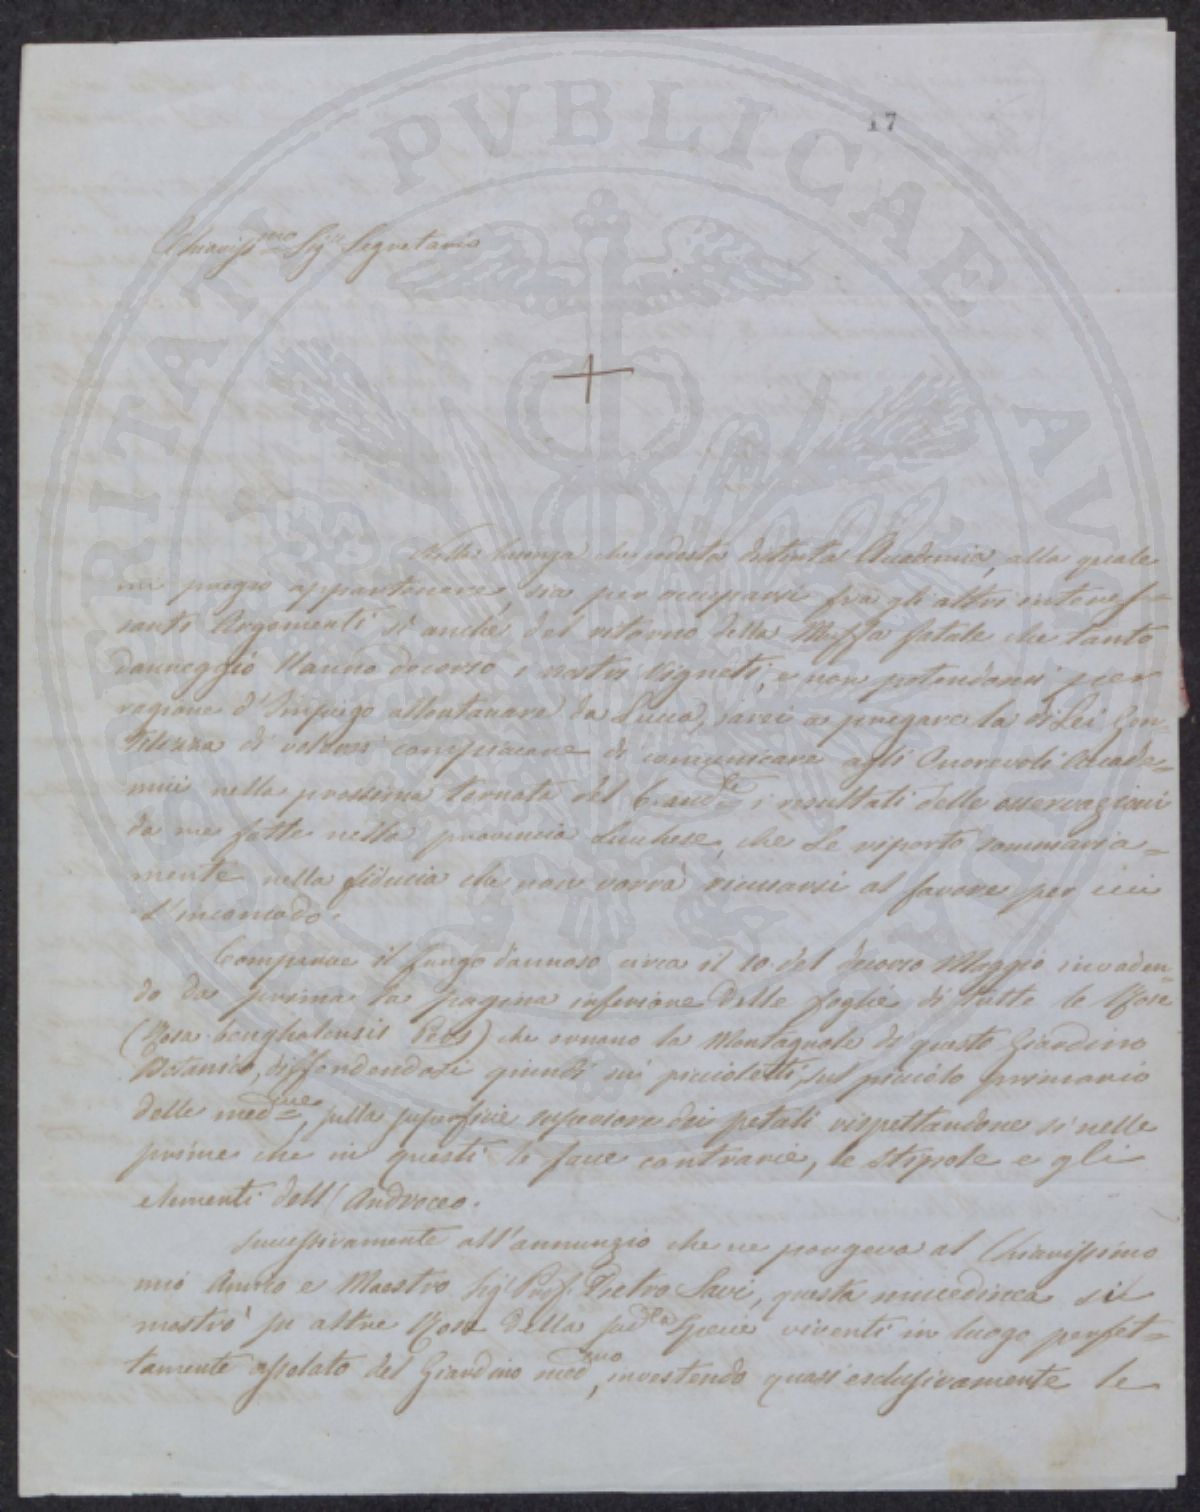 17
Chiariss.mo Sig.r Segretario
Nella lusinga che codesta distinta Accademia, alla quale
mi pregio appartenere, sia per occuparsi fra gli altri interes=
santi Argomenti sì anche del ritorno della Muffa fatale che tanto
danneggiò l'anno decorso i nostri Vigneti, e non potendomi per
ragione d'Impiego allontanare da Lucca, sarei a pregare la di Lei Gen=
tilezza di volersi compiacere di comunicare agli Onorevoli Accade=
mici nella prossima tornata del 6 and.te i resultati delle osservazioni
da me fatte nella provincia Lucchese, che Le riporto sommaria=
mente nella fiducia che non vorrà ricusarsi al favore per
l'incomodo.
Comparve il fungo dannoso circa il 10 del decorso Maggio invaden=
do da prima la pagina inferiore delle foglie di tutte le Rose
(Rosa benghalensis Pers) che ornano la Montagnola di questo Giardino
Botanico, diffondendosi quindi sui piccioletti, sul picciolo primario
delle med.me, sulla superficie superiore dei petali rispettandone sì nelle
prime che in questi le facce contrarie, le stipole e gli
elementi dell'Androceo.
Successivamente all'annunzio che ne porgeva al Chiarissimo
mio Amico e Maestro Sig. Prof. Pietro Savi, questa mucedinea si
mostrò su altre Rose della sud.ta Specie viventi in luogo perfet=
tamente assolato del Giardino med.mo, investendo quasi esclusivamente le
PROSPERITATI PVBLICAE AVGENDAE